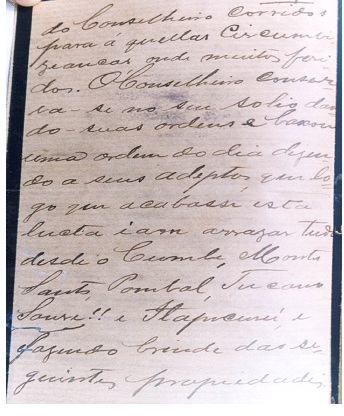 do Conselheiro corridos
para á quellas Circumvi
zeancas onde muitos feri
dos. O Conselheiro conser
va-se no seu solio dan
do-suas ordens e baxou
uma ordem do dia dizen
do a seus adeptos que lo-
go que acabasse esta
lucta iam arrazar tudo
desde o Cumbe, Monte
Santo, Pombal, Tucano
Soure!! e Itapucurú, e
fazendo brinde das se-
guintes propriedades